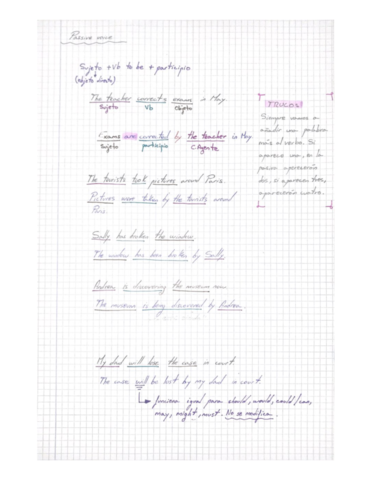 Passive voice
Sujeto + Vb to be + participio
(objeto directo)
The teacher corrects exams in May
Sujeto Vb Objeto
Exams are corrected by the teacher in May
Sujeto participio C Agente
TRUCO!
Siempre vamos a
añadir una palabra
más al verbo. Si
aparece una, en la
pasiva aparecerán
dos, si aparecen tres,
aparecerán cuatro.
The tourists took pictures around Paris.
Pictures were taken by the tourists around
Paris.
Sally has broken the window
The window has been broken by Sally
is discovering the museum now
The museum is being discovered by
My dad will lose the case in court
The case will be lost by my dad in court
funciona igual para should, would, could/can,
may, might, must. No se modifica.